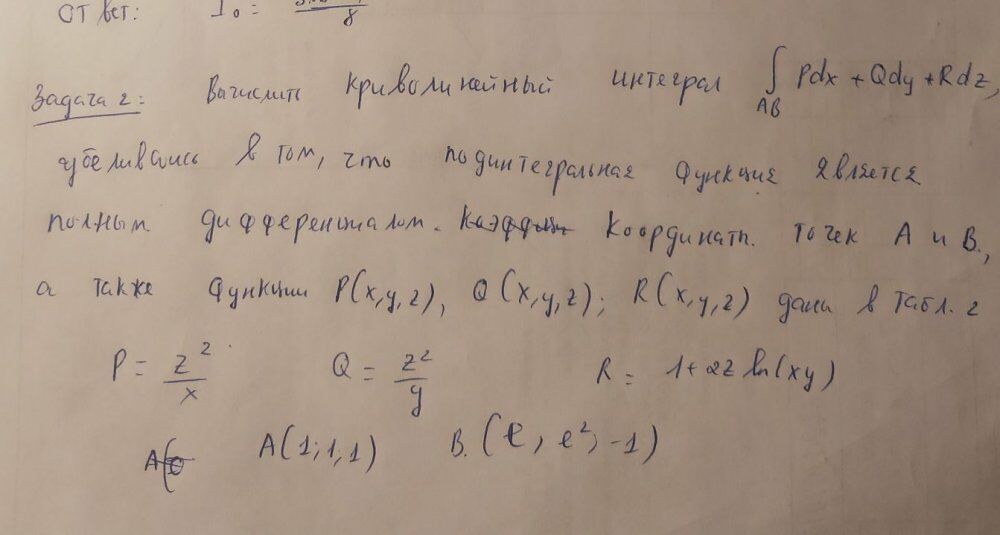 Ответ: I₀ =
8
Задача 2: Вычислить криволинейный интеграл ∫ Pdx + Qdy + Rdz,
AB
убедившись в том, что подинтегральная функция является
полным дифференциалом. Координаты точек A и B,
а также функции P(x,y,z), Q(x,y,z); R(x,y,z) даны в табл. 2
P = z²/x Q = z²/y R = 1+2z ln(xy)
A(1;1,1) B.(e, e², -1)